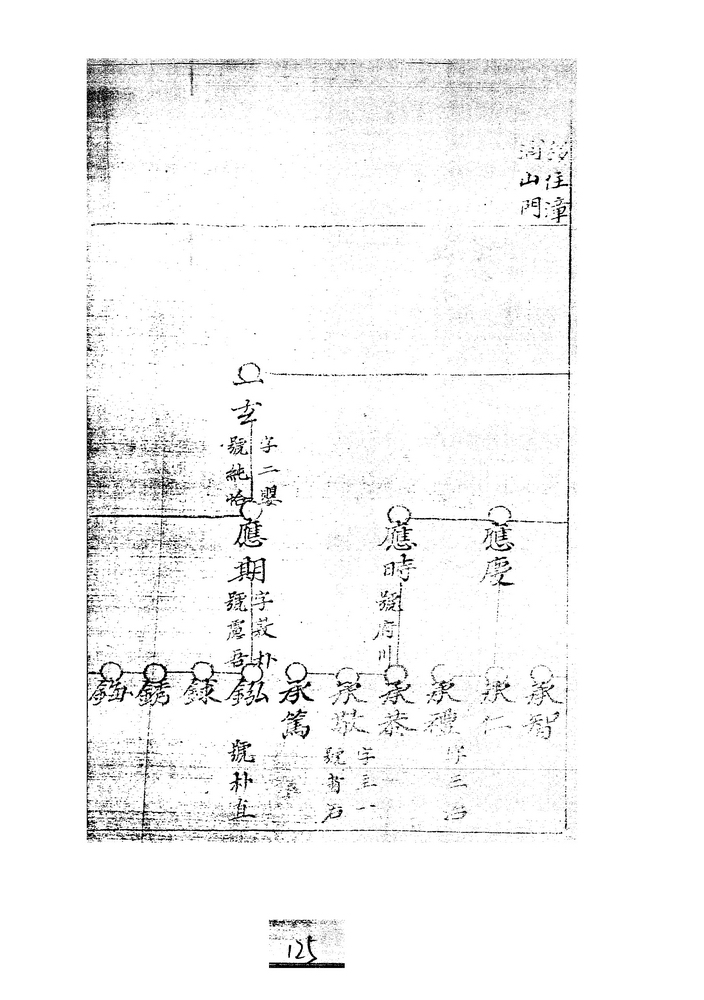 住漳
山門
一玄
字二嬰
號純怡
應慶
應時
號府川
應期
字敦朴
號愚吾
承智
承仁
承禮
字三
承恭
承敬
字主一
號省石
承篤
鈜
號朴直
銶
銹
鋂
125